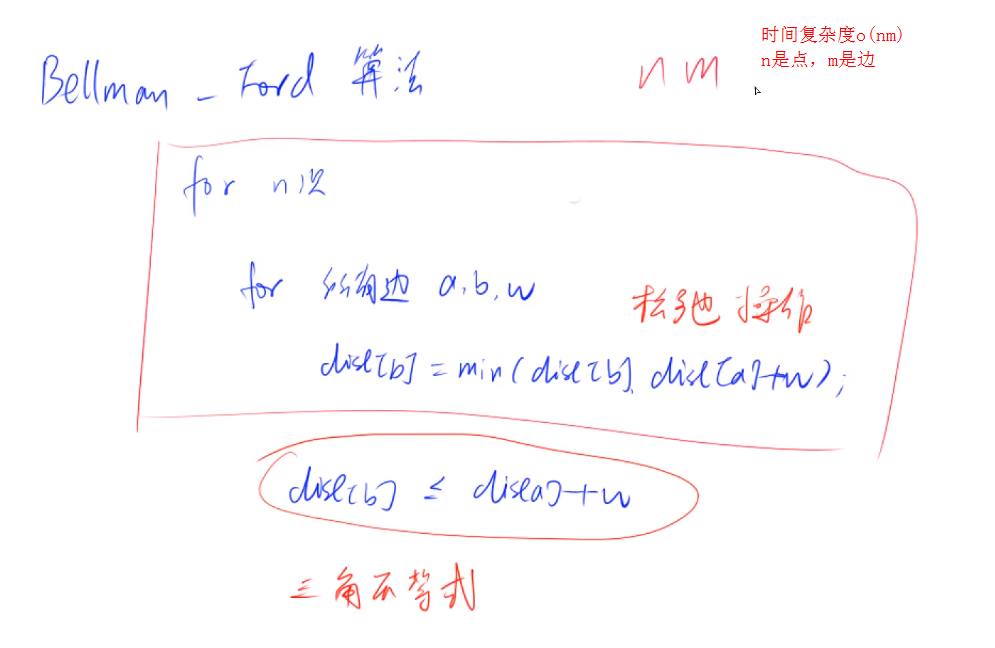 Bellman - Ford 算法
n m
时间复杂度o(nm)
n是点，m是边
for n次
for 所有边 a,b,w
松弛 操作
dist[b] = min(dist[b], dist[a]+w);
dist[b] ≤ dist[a]+w
三角不等式